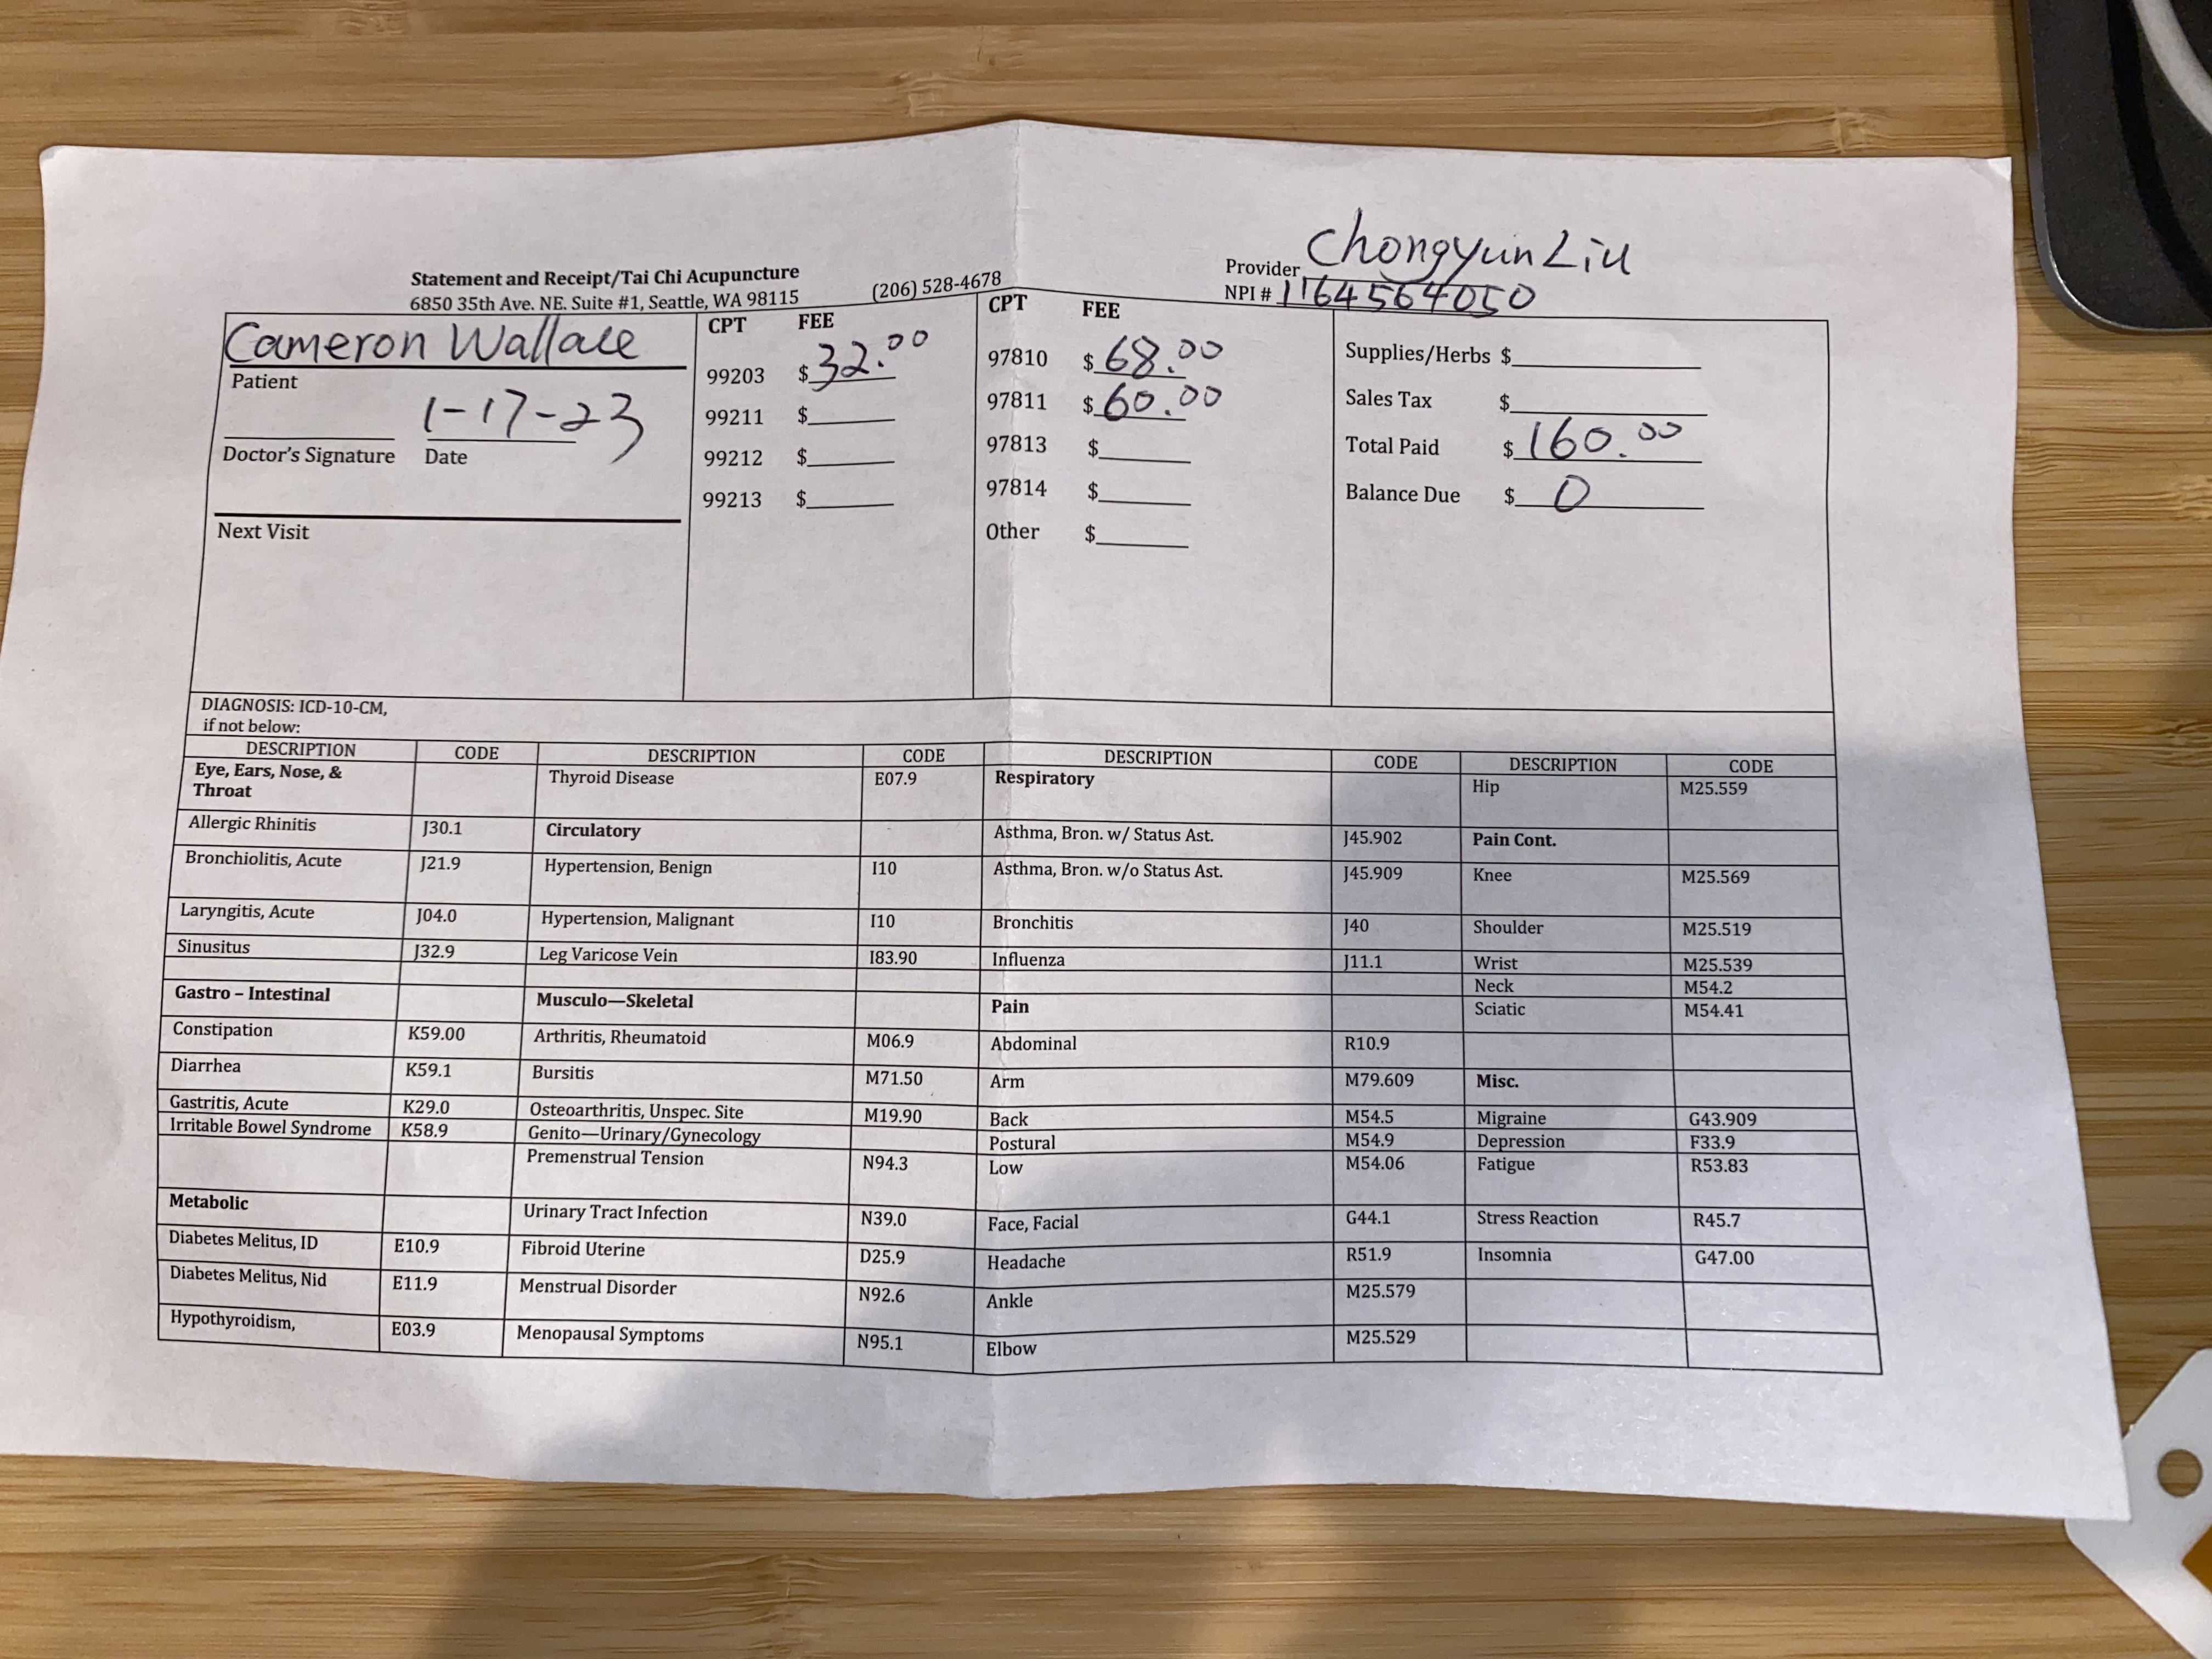 Chongyun Liu
Statement and Receipt/Tai Chi Acupuncture
6850 35th Ave. NE. Suite #1, Seattle, WA 98115 (206) 528-4678
Provider
NPI # 1164564050
Cameron Wallace
Patient
1-17-23
Doctor's Signature Date
Next Visit
CPT FEE
99203 $32.00
99211 $
99212 $
99213 $
CPT FEE
97810 $68.00
97811 $60.00
97813 $
97814 $
Other $
Supplies/Herbs $
Sales Tax $
Total Paid $160.00
Balance Due $ 0
DIAGNOSIS: ICD-10-CM,
if not below:
DESCRIPTION CODE DESCRIPTION CODE DESCRIPTION CODE DESCRIPTION CODE
Eye, Ears, Nose, &
Throat Thyroid Disease E07.9 Respiratory Hip M25.559
Allergic Rhinitis J30.1 Circulatory Asthma, Bron. w/ Status Ast. J45.902 Pain Cont.
Bronchiolitis, Acute J21.9 Hypertension, Benign I10 Asthma, Bron. w/o Status Ast. J45.909 Knee M25.569
Laryngitis, Acute J04.0 Hypertension, Malignant I10 Bronchitis J40 Shoulder M25.519
Sinusitus J32.9 Leg Varicose Vein I83.90 Influenza J11.1 Wrist M25.539
Neck M54.2
Gastro – Intestinal Musculo—Skeletal Pain Sciatic M54.41
Constipation K59.00 Arthritis, Rheumatoid M06.9 Abdominal R10.9
Diarrhea K59.1 Bursitis M71.50 Arm M79.609 Misc.
Gastritis, Acute K29.0 Osteoarthritis, Unspec. Site M19.90 Back M54.5 Migraine G43.909
Irritable Bowel Syndrome K58.9 Genito—Urinary/Gynecology Postural M54.9 Depression F33.9
Premenstrual Tension N94.3 Low M54.06 Fatigue R53.83
Metabolic Urinary Tract Infection N39.0 Face, Facial G44.1 Stress Reaction R45.7
Diabetes Melitus, ID E10.9 Fibroid Uterine D25.9 Headache R51.9 Insomnia G47.00
Diabetes Melitus, Nid E11.9 Menstrual Disorder N92.6 Ankle M25.579
Hypothyroidism, E03.9 Menopausal Symptoms N95.1 Elbow M25.529